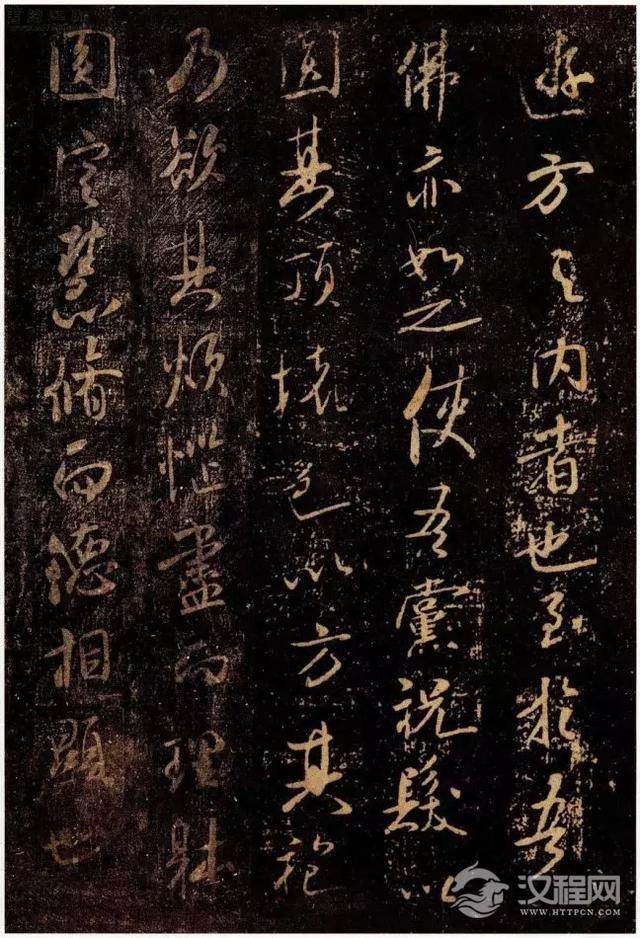 遊方之内者也至於吾
佛亦如之使吾黨祝髮以
圓其頂壞色以方其袍
乃欲其煩惱盡而理體
圓定慧脩而德相顯也
汉程网
WWW.HTTPCN.COM